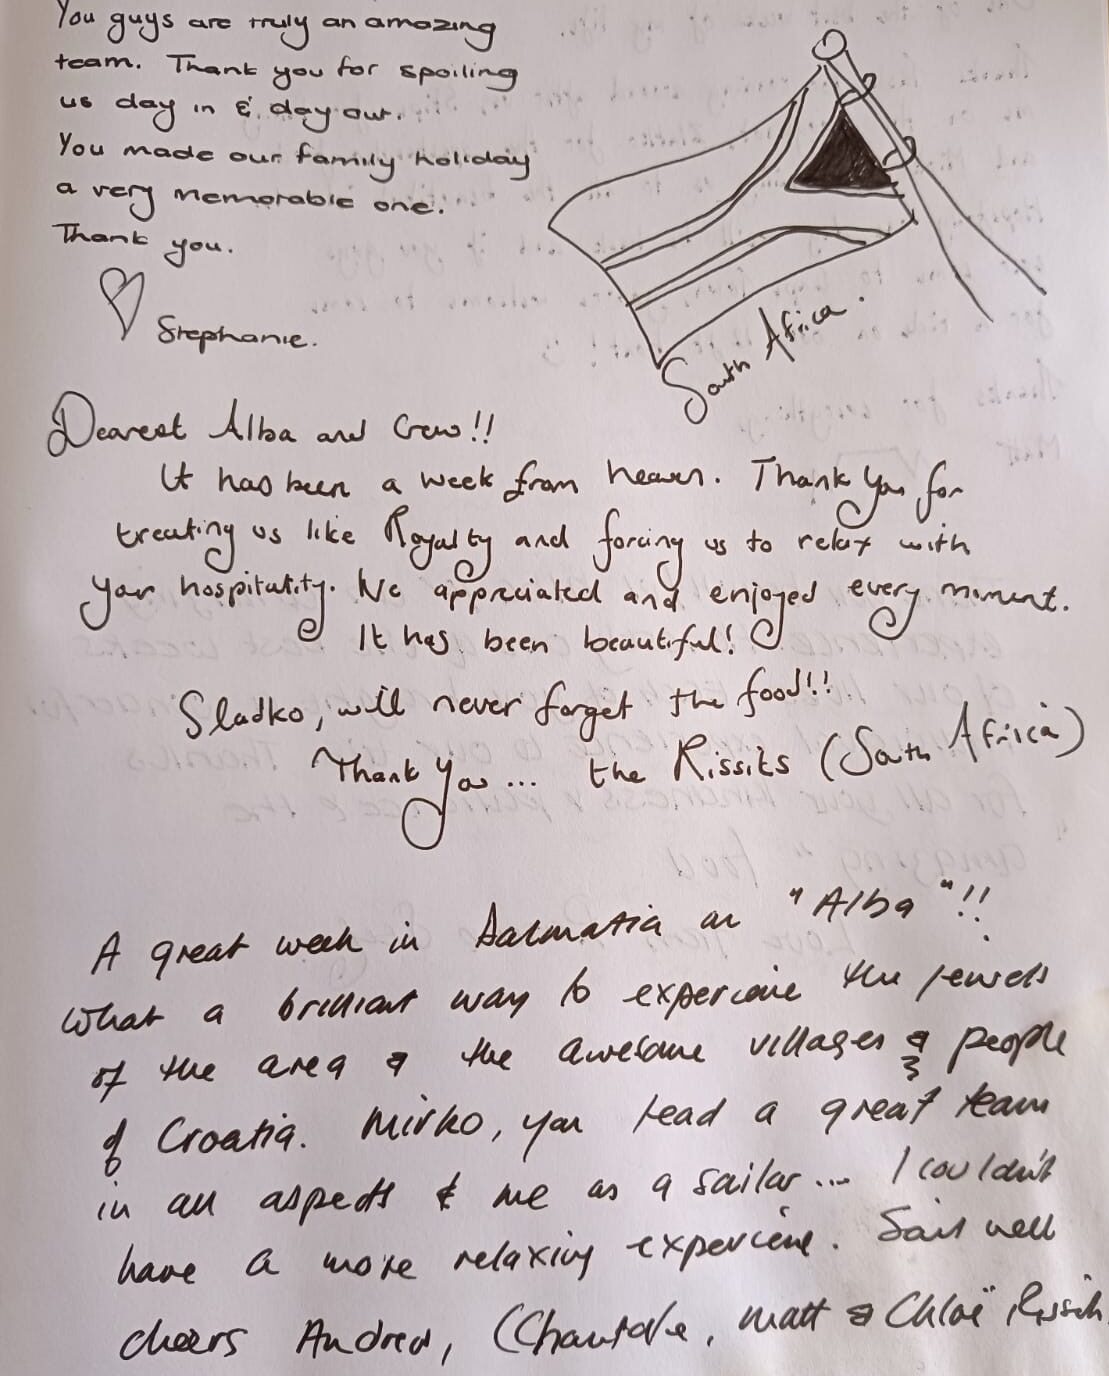 You guys are truly an amazing
team. Thank you for spoiling
us day in & day out.
You made our family holiday
a very memorable one.
Thank you.
Stephanie.
South Africa.
Dearest Alba and Crew!!
It has been a week from heaven. Thank you for
treating us like Royalty and forcing us to relax with
your hospitality. We appreciated and enjoyed every moment.
It has been beautiful!
Sladko, will never forget the food!!
Thank You... the Rissiks (South Africa)
A great week in Dalmatia on "Alba"!!
What a brilliant way to experience the jewels
of the area & the awesome villages & people
of Croatia. Mirko, you lead a great team
in all aspects & me as a sailor... I couldn't
have a more relaxing experience. Sail well
cheers Andrew, (Chantale, Matt & Chloë Rissik